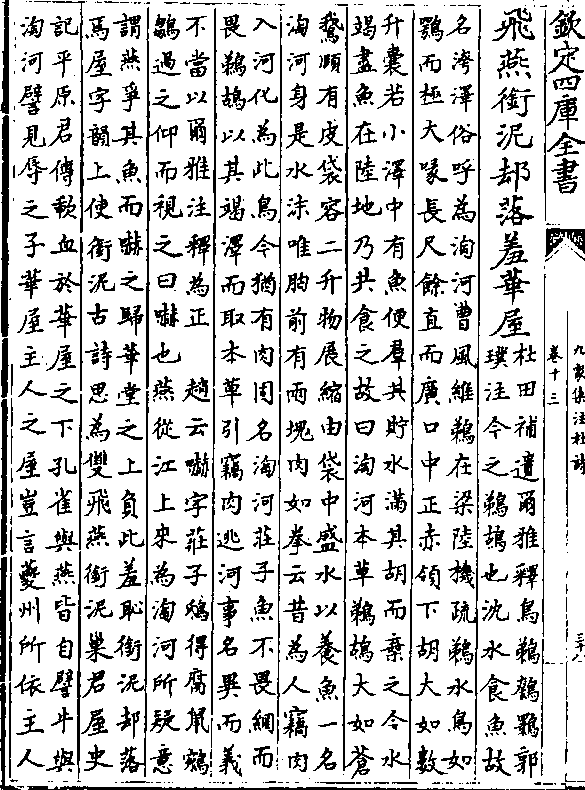 欽定四庫全書
九家集注杜詩
卷十三
三十八
飛燕銜泥却落羞華屋
杜田補遺爾雅釋鳥鵜鴮鸅郭
璞注今之鵜鶘也沈水食魚故
名洿澤俗呼為淘河曹風維鵜在梁陸機疏鵜水鳥如
鶚而極大喙長尺餘直而廣口中正赤頷下胡大如數
升囊若小澤中有魚便羣共貯水滿其胡而棄之令水
竭盡魚在陸地乃共食之故曰淘河本草鵜鶘大如蒼
鵞頤有皮袋容二升物展縮由袋中盛水以養魚一名
淘河身是水沫唯胸前有兩塊肉如拳云昔為人竊肉
入河化為此鳥今猶有肉因名淘河莊子魚不畏網而
畏鵜鶘以其竭澤而取本草引竊肉逃河事名異而義
不當以爾雅注釋為正　趙云嚇字莊子鴟得腐鼠鵷
鶵過之仰而視之曰嚇也燕從江上來為淘河所疑意
謂燕爭其魚而嚇之歸華堂之上負此羞恥銜泥却落
焉屋字韻上使銜泥古詩思為雙飛燕銜泥巢君屋史
記平原君傳歃血於華屋之下孔雀與燕皆自譬牛與
淘河譬見辱之子華屋主人之屋豈言夔州所依主人